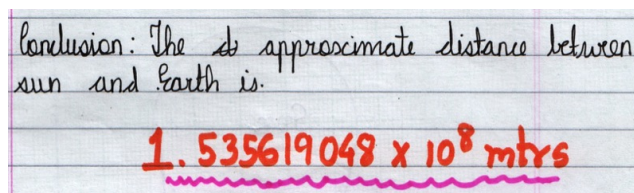 Conclusion: The approximate distance between
sun and Earth is.
1.535619048 x 10⁸ mtrs